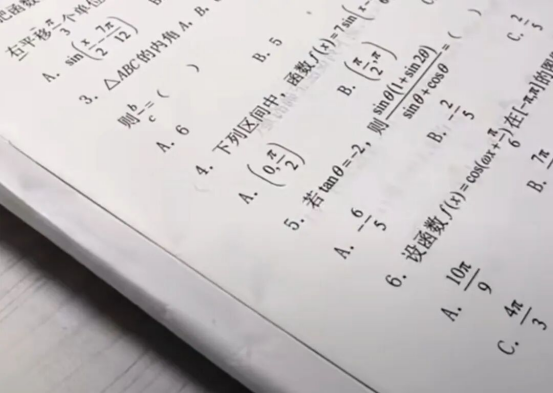 把函数
右平移π/3个单位
A. sin(x/2-7π/12) B.
3. △ABC的内角A, B,
则b/c=( )
A. 6 B. 5
4. 下列区间中，函数f(x)=7sin(x-
A. (0,π/2) B. (π/2,π) C.
5. 若tanθ=-2，则sinθ(1+sin2θ)/sinθ+cosθ=( )
A. -6/5 B. -2/5 C. 2/5
6. 设函数f(x)=cos(ωx+π/6)在[-π,π]的图
A. 10π/9 B. 7π
C. 4π/3